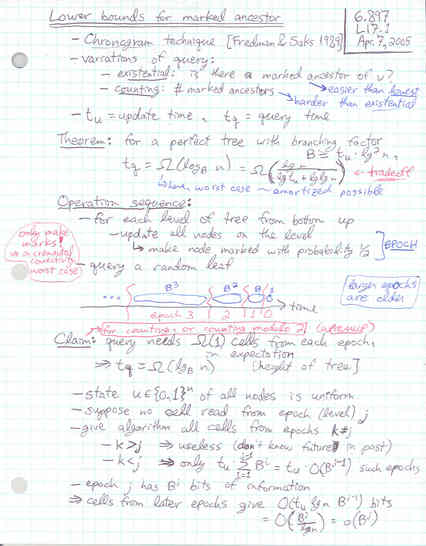 Lower bounds for marked ancestor
6.897
L17.1
Apr. 7, 2005
- Chronogram technique [Fredman & Saks 1989]
- variations of query:
- existential: is there a marked ancestor of v?
- counting: # marked ancestors
easier than lowest
harder than existential
- tu = update time, tq = query time
Theorem: for a perfect tree with branching factor
B ≅ tu · lg² n,
tq = Ω(log_B n) = Ω(lg n / (lg tu + lg lg n)) ← tradeoff
here, worst case - amortized possible
Operation sequence:
- for each level of tree from bottom up
- update all nodes on the level
↳ make node marked with probability 1/2
] EPOCH
only make
marks!
worst case)
- query a random leaf
... B³ B² B 1 → time
epoch 3 2 1 0
bigger epochs
are older
for counting, or counting modulo 2
Claim: query needs Ω(1) cells from each epoch,
in expectation
⇒ tq = Ω(log_B n) [height of tree]
- state u∈{0,1}ⁿ of all nodes is uniform
- suppose no cell read from epoch (level) j
- give algorithm all cells from epochs k≠j
- k>j ⇒ useless (don't know future in past)
- k<j ⇒ only tu Σ Bⁱ = tu · O(B^(j-1)) such epochs
- epoch j has Bʲ bits of information
⇒ cells from later epochs give O(tu lg n B^(j-1)) bits
= O(Bʲ / lg n) = o(Bʲ)